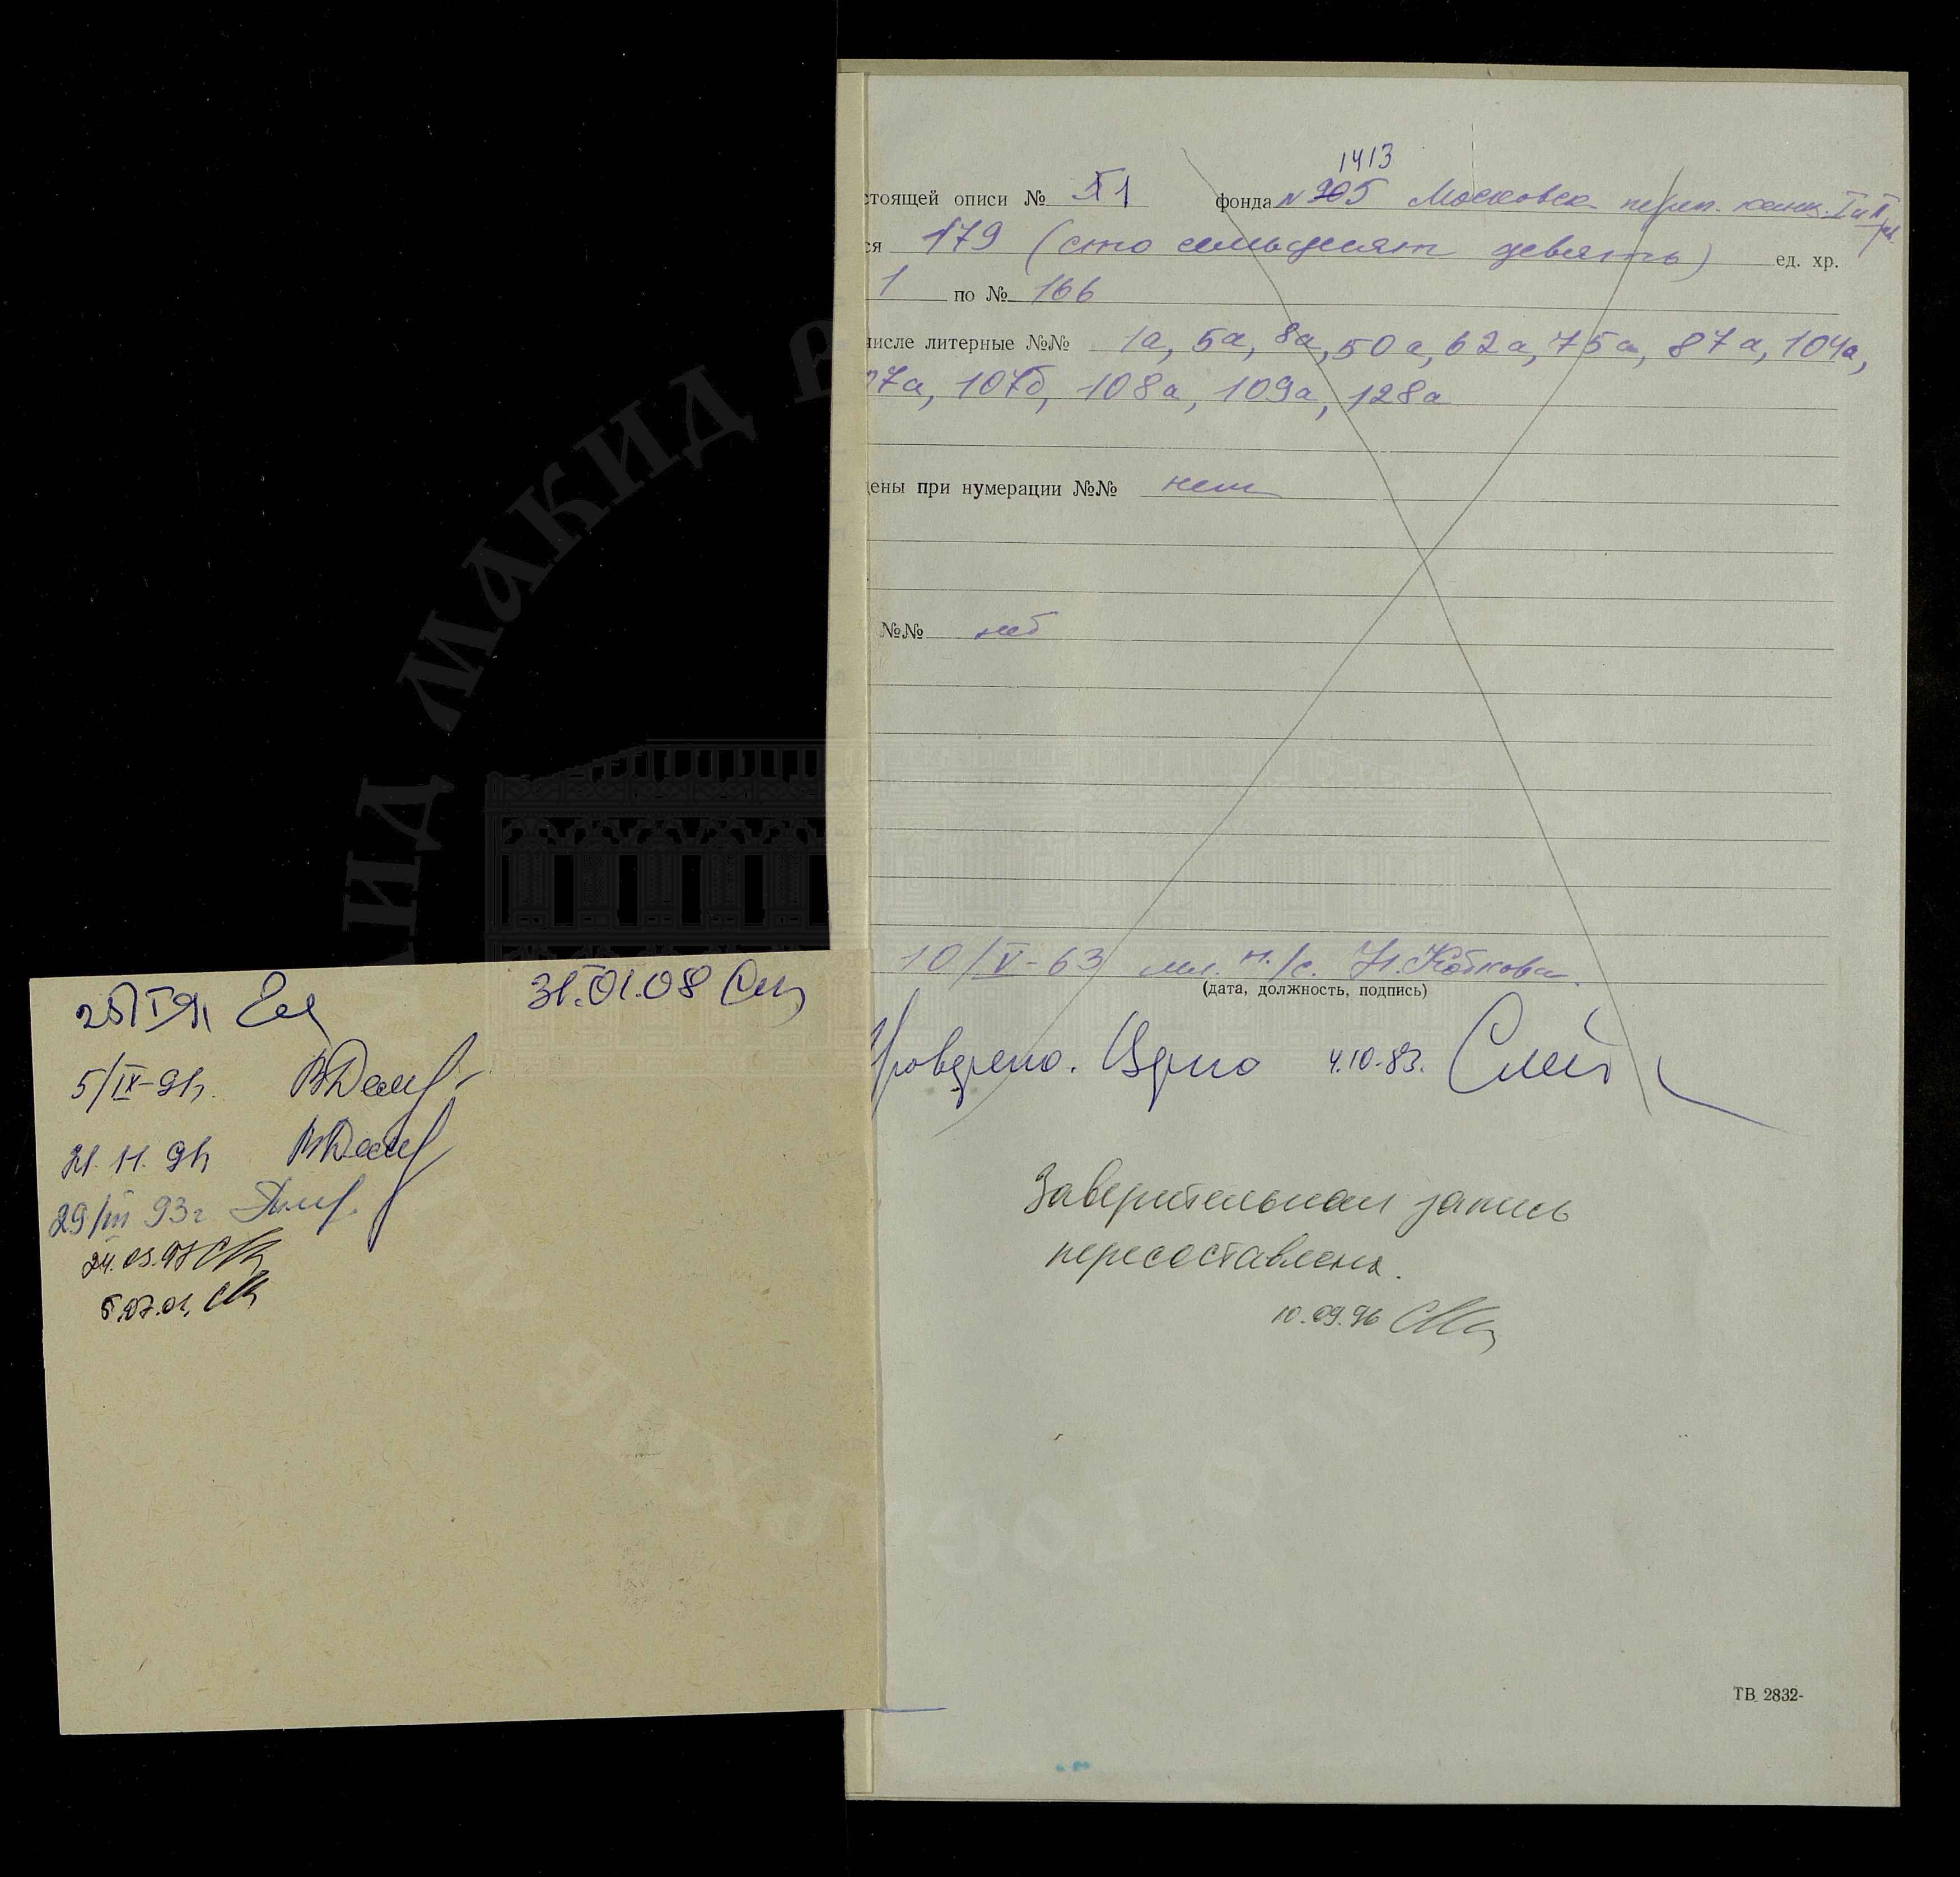 1413
стоящей описи № 1 фонда № 905 Московск. перп. канц. I и II
ся 179 (сто семьдесят девять) ед. хр.
1 по № 166
числе литерные №№ 1а, 5а, 8а, 50а, 62а, 75а, 87а, 104а,
07а, 107б, 108а, 109а, 128а
ены при нумерации №№ нет
№№ нет
10/V-63 мл. н./с. Н. Кобкова
(дата, должность, подпись)
Проверено. Верно 4.10.83.
Заверительная запись
пересоставлена.
10.09.96
ТВ 2832-
31.01.08
5/IX-91г.
21.11.91г
29/III 93г
24.03.97
5.07.01.
МИД МАКИД